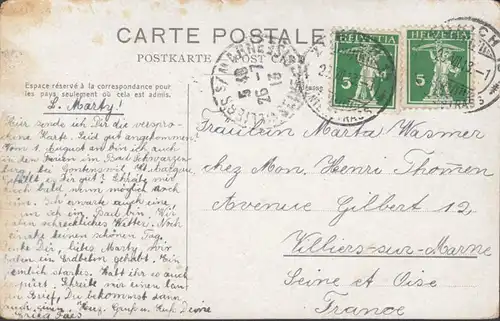 CARTE POSTALE
POSTKARTE POST C
Espace réservé à la correspondance pour
les pays seulement où cela est admis.
HELVETIA
HELVETIA
5
5
L. Marty!
Hier sende ich Dir die verspro-
chene Karte. Seid gut angekommen?
Vom 1. August an bin ich auch
in den Ferien im Bad Schwarzen-
berg bei Gontenswil
es ihr gut? Schreibe mir
recht bald, wenn möglich auch
Ich erwarte auch eine,
ich im Bad bin. Wir
haben schreckliches Wetter. Noch
keinen schönen Tag.
Denke Dir, liebes Marty, wir
haben ein Erdbeben gehabt. Ein
ziemlich starkes. Habt ihr es auch
gespürt. Schreibe mir einen lan-
gen Brief, Du bekommst dann
auch einen. Herz. Gruss u. Kuss Deine
Erica
Fräulein Marta Wasmer
chez Mon. Henri Thomen
Avenue Gilbert 12,
Villiers-sur-Marne
Seine et Oise
France